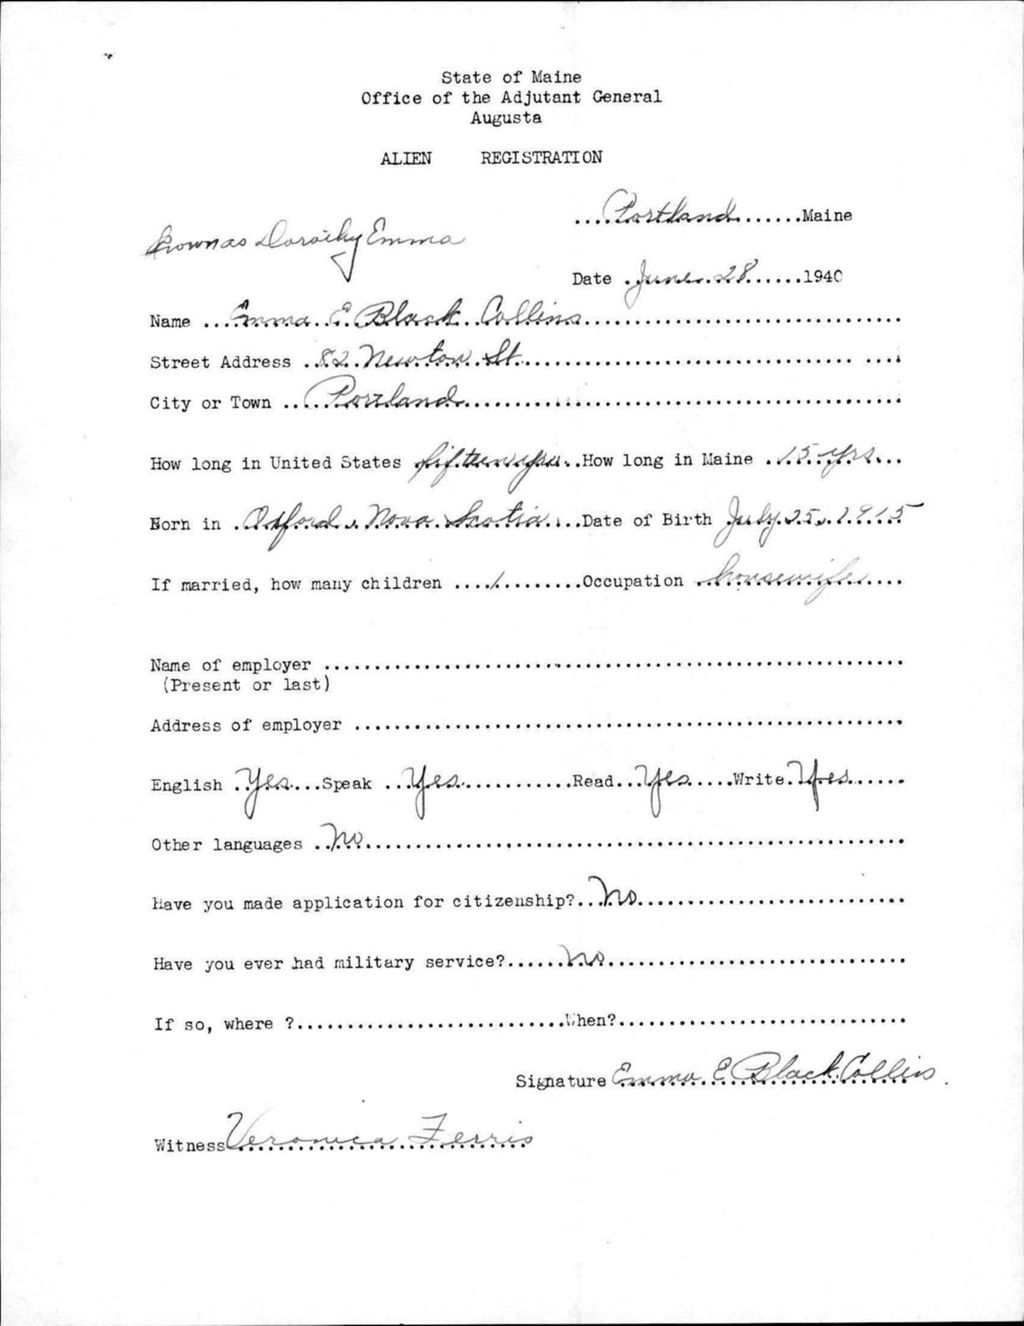 State of Maine
Office of the Adjutant General
Augusta
ALIEN REGISTRATION
....Portland.......Maine
Known as Dorothy Emma
Date .June 28......1940
Name ...Emma E. Black Collins................................
Street Address ..82 Newton St................................
City or Town ....Portland................................
How long in United States fifteen yrs..How long in Maine .15 yrs...
Born in .Oxford, Nova Scotia...Date of Birth July 25, 1915
If married, how many children ....1.........Occupation .housewife....
Name of employer ................................
(Present or last)
Address of employer ................................
English .Yes...Speak ..Yes............Read..Yes.....Write.Yes......
Other languages ..No................................
Have you made application for citizenship?..No............................
Have you ever had military service?......No...............................
If so, where ?...........................When?.............................
Signature Emma E Black Collins.
Witness Veronica Ferris